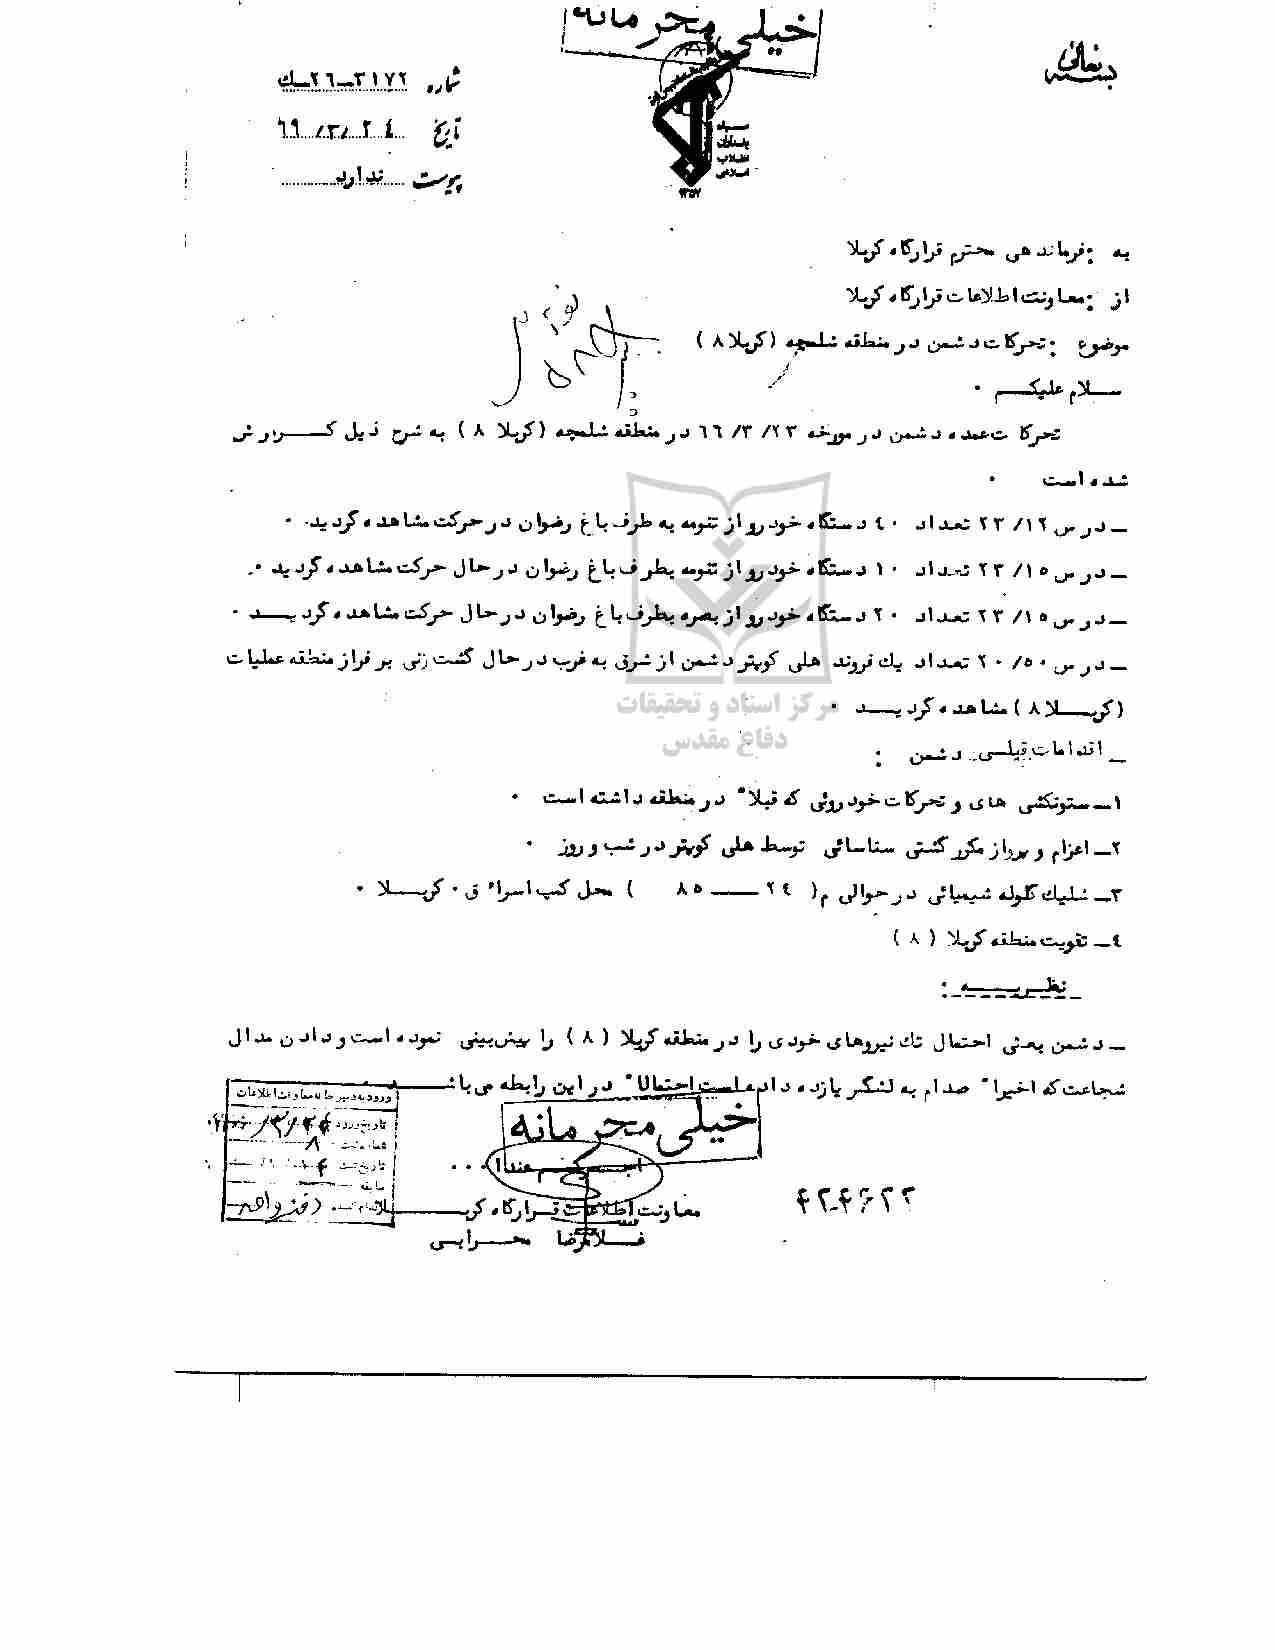 خیلی محرمانه
بسمه‌تعالی
شماره ۳۱۷۲-۲٦-ك
تاریخ ٦٦/۳/۲٤
پیوست ندارد
سپاه
پاسداران
انقلاب
اسلامی
۱۳۵۷
به : فرماندهی محترم قرارگاه کربلا
از : معاونت اطلاعات قرارگاه کربلا
موضوع : تحرکات دشمن در منطقه شلمچه (کربلا ۸)
سلام علیکم .
تحرکات عمده دشمن در مورخه ۲۳/ ۳/ ٦٦ در منطقه شلمچه (کربلا ۸ ) به شرح ذیل گزارش
شده است .
ـ در س ۱۲/ ۲۳ تعداد ٤۰ دستگاه خودرو از تنومه به طرف باغ رضوان در حرکت مشاهده گردید .
ـ در س ۱٥/ ۲۳ تعداد ۱۰ دستگاه خودرو از تنومه بطرف باغ رضوان در حال حرکت مشاهده گردید .
ـ در س ۱٥/ ۲۳ تعداد ۲۰ دستگاه خودرو از بصره بطرف باغ رضوان در حال حرکت مشاهده گردید .
ـ در س ٥۰/ ۲۰ تعداد یك فروند هلی کوپتر دشمن از شرق به غرب در حال گشت زنی بر فراز منطقه عملیات
(کربلا ۸ ) مشاهده گردید .
مرکز اسناد و تحقیقات
دفاع مقدس
ـ اقدامات قبلی دشمن :
۱ـ ستونکشی های و تحرکات خودروئی که قبلا" در منطقه داشته است .
۲ـ اعزام و پرواز مکرر گشتی سناسائی توسط هلی کوپتر در شب و روز .
۳ـ شلیك گلوله شیمیائی در حوالی م( ۲٤ ــ ۸٥ ) محل کمپ اسراء ق . کربلا .
٤ـ تقویت منطقه کربلا ( ۸ )
نظریه :
ـ دشمن بعثی احتمال تك نیروهای خودی را در منطقه کربلا ( ۸ ) را پیش‌بینی نموده است و دادن مدال
شجاعت که اخیرا" صدام به لشگر یازده داده است احتمالا" در این رابطه می باشد
خیلی محرمانه
ورود به دبیرخانه معاونت اطلاعات
تاریخ ورود
شماره ثبت ۸
تاریخ ثبت
سابقه
معاونت اطلاعات قرارگاه کربلا
غلامرضا محرابی